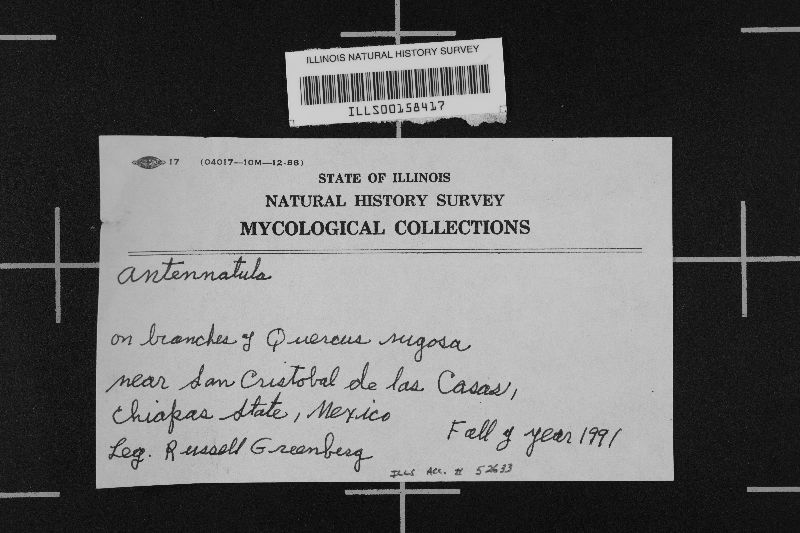 ILLINOIS NATURAL HISTORY SURVEY
ILLS00158417
17 (04017—10M—12-88)
STATE OF ILLINOIS
NATURAL HISTORY SURVEY
MYCOLOGICAL COLLECTIONS
Antennatula
on branches of Quercus rugosa
near San Cristobal de las Casas,
Chiapas State, Mexico
Fall of year 1991
Leg. Russell Greenberg
ILLS Acc. # 52633